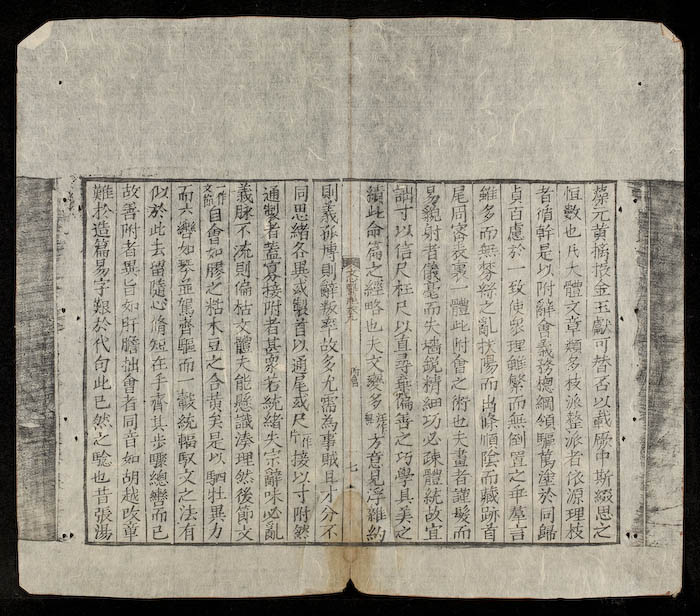 藻玄黃摛振金玉獻可替否以裁厥中斯綴思之
恒數也凡大體文章類多枝派整派者依源理枝
者循幹是以附辭會義務總綱領驅萬塗於同歸
貞百慮於一致使衆理雖繁而無倒置之乖羣言
雖多而無棼絲之亂扶陽而出條順陰而藏跡首
尾周密表裏一體此附會之術也夫畫者謹髮而
易貌射者儀毫而失墻銳精細巧必疎體統故宜
詘寸以信尺枉尺以直尋棄偏善之巧學具美之
績此命篇之經略也夫文變多
方意見浮雜約
則義孤博則辭叛率故多尤需爲事賊且才分不
同思緒各異或製首以通尾或尺
接以寸附然
通製者蓋寡接附者甚衆若統緒失宗辭味必亂
義脉不流則偏枯文體夫能懸識湊理然後節文
自會如膠之粘木豆之合黃矣是以駟牡異力
而六轡如琴並駕齊驅而一轂統輻馭文之法有
似於此去留隨心脩短在手齊其步驟總轡而已
故善附者異旨如肝膽拙會者同音如胡越改章
難於造篇易字艱於代句此已然之驗也昔張湯
七